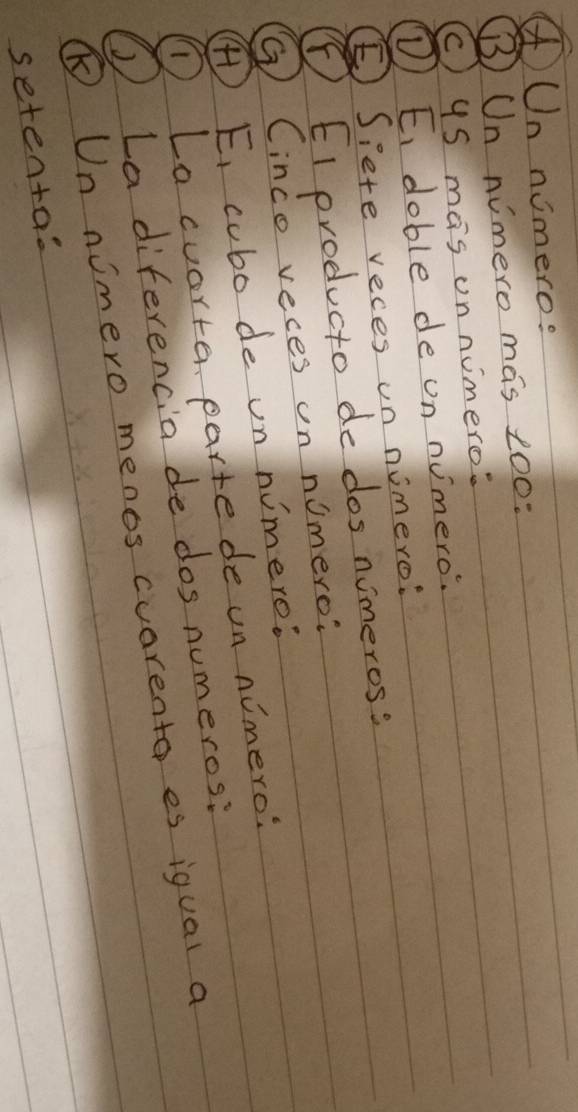 A Un número:
B Un número más 100:
C 45 más un número:
D El doble de un número:
E Siete veces un número:
F El producto de dos números:
G Cinco veces un número:
H El cubo de un número:
I La cuarta parte de un número:
J La diferencia de dos numeros:
K Un número menos cuarenta es igual a
setenta: